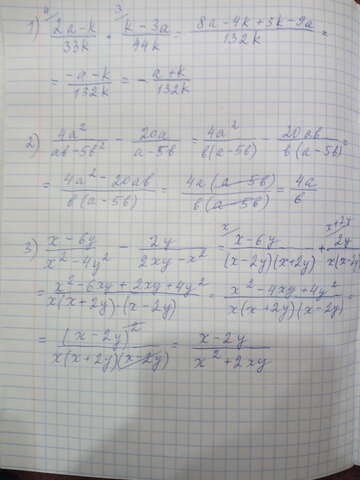 4 3
1) (2a-k)/33k + (k-3a)/44k = (8a-4k+3k-9a)/132k =
= (-a-k)/132k = -(a+k)/132k
2) 4a²/(ab-5b²) - 20a/(a-5b) = 4a²/(b(a-5b)) - 20ab/(b(a-5b)) =
= (4a²-20ab)/(b(a-5b)) = 4a(a-5b)/(b(a-5b)) = 4a/b
x x+2y
3) (x-6y)/(x²-4y²) - 2y/(2xy-x²) = (x-6y)/((x-2y)(x+2y)) + 2y/(x(x-
= (x²-6xy+2xy+4y²)/(x(x+2y)·(x-2y)) = (x²-4xy+4y²)/(x(x+2y)(x-2y)) =
= (x-2y)²/(x(x+2y)(x-2y)) = (x-2y)/(x²+2xy)